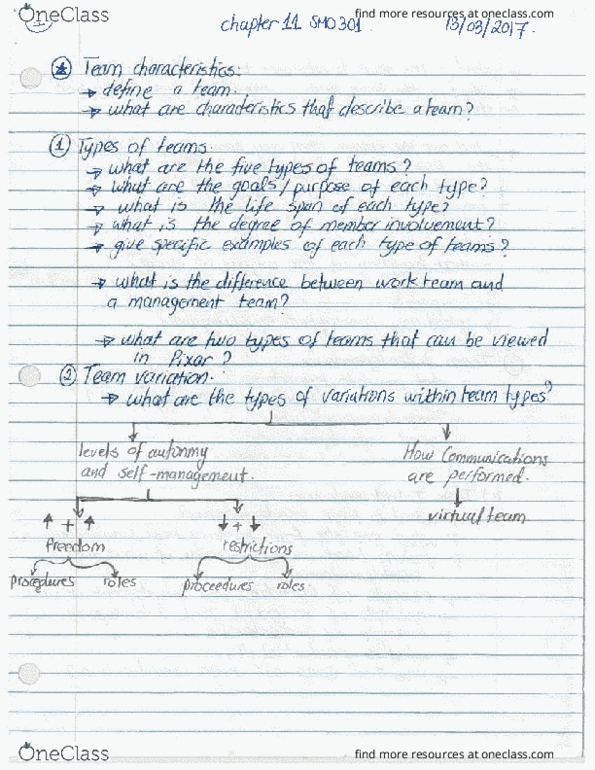 OneClass
find more resources at oneclass.com
1
chapter 11 SMO301
13/03/2017.
Team characteristics:
→ define a team.
→ what are characteristics that describe a team?
① Types of teams.
→ what are the five types of teams?
→ what are the goals/purpose of each type?
→ what is the life span of each type?
→ what is the degree of member involvement?
→ give specific examples of each type of teams?
→ what is the difference between work team and
a management team?
→ what are two types of teams that can be viewed
in Pixar?
② Team variation.
→ what are the types of variations within team types?
levels of autonmy
and self-management.
How Communications
are performed.
↑ + ↑
↓ + ↓
virtual team
freedom
restrictions
procedures
roles
proceedures
roles.
OneClass
find more resources at oneclass.com